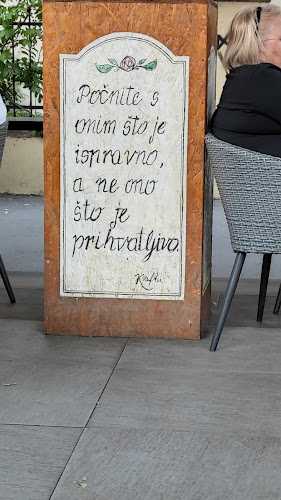 Počnite s
onim što je
ispravno,
a ne ono
što je
prihvatljivo.
Kafka